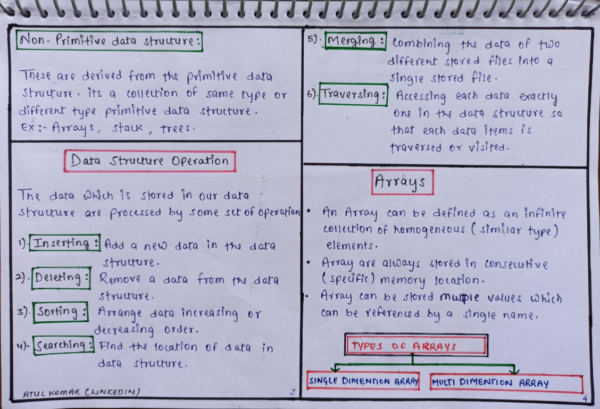 Non-Primitive data structure:
These are derived from the primitive data
structure. its a collection of same type or
different type primitive data structure.
Ex:- Arrays, stack, trees.
Data Structure Operation
The data which is stored in our data
structure are processed by some set of operation
1). Inserting: Add a new data in the data
structure.
2). Deleting: Remove a data from the data
structure.
3). Sorting: Arrange data increasing or
decreasing order.
4). Searching: Find the location of data in
data structure.
ATUL KUMAR (LINKEDIN)
3
5). Merging: Combining the data of two
different stored files into a
single stored file.
6). Traversing: Accessing each data exactly
one in the data structure so
that each data items is
traversed or visited.
Arrays
• An Array can be defined as an infinite
collection of homogeneous (similar type)
elements.
• Array are always stored in consecutive
(specific) memory location.
• Array can be stored multiple values which
can be referenced by a single name.
TYPES OF ARRAYS
SINGLE DIMENSION ARRAY
MULTI DIMENTION ARRAY
4